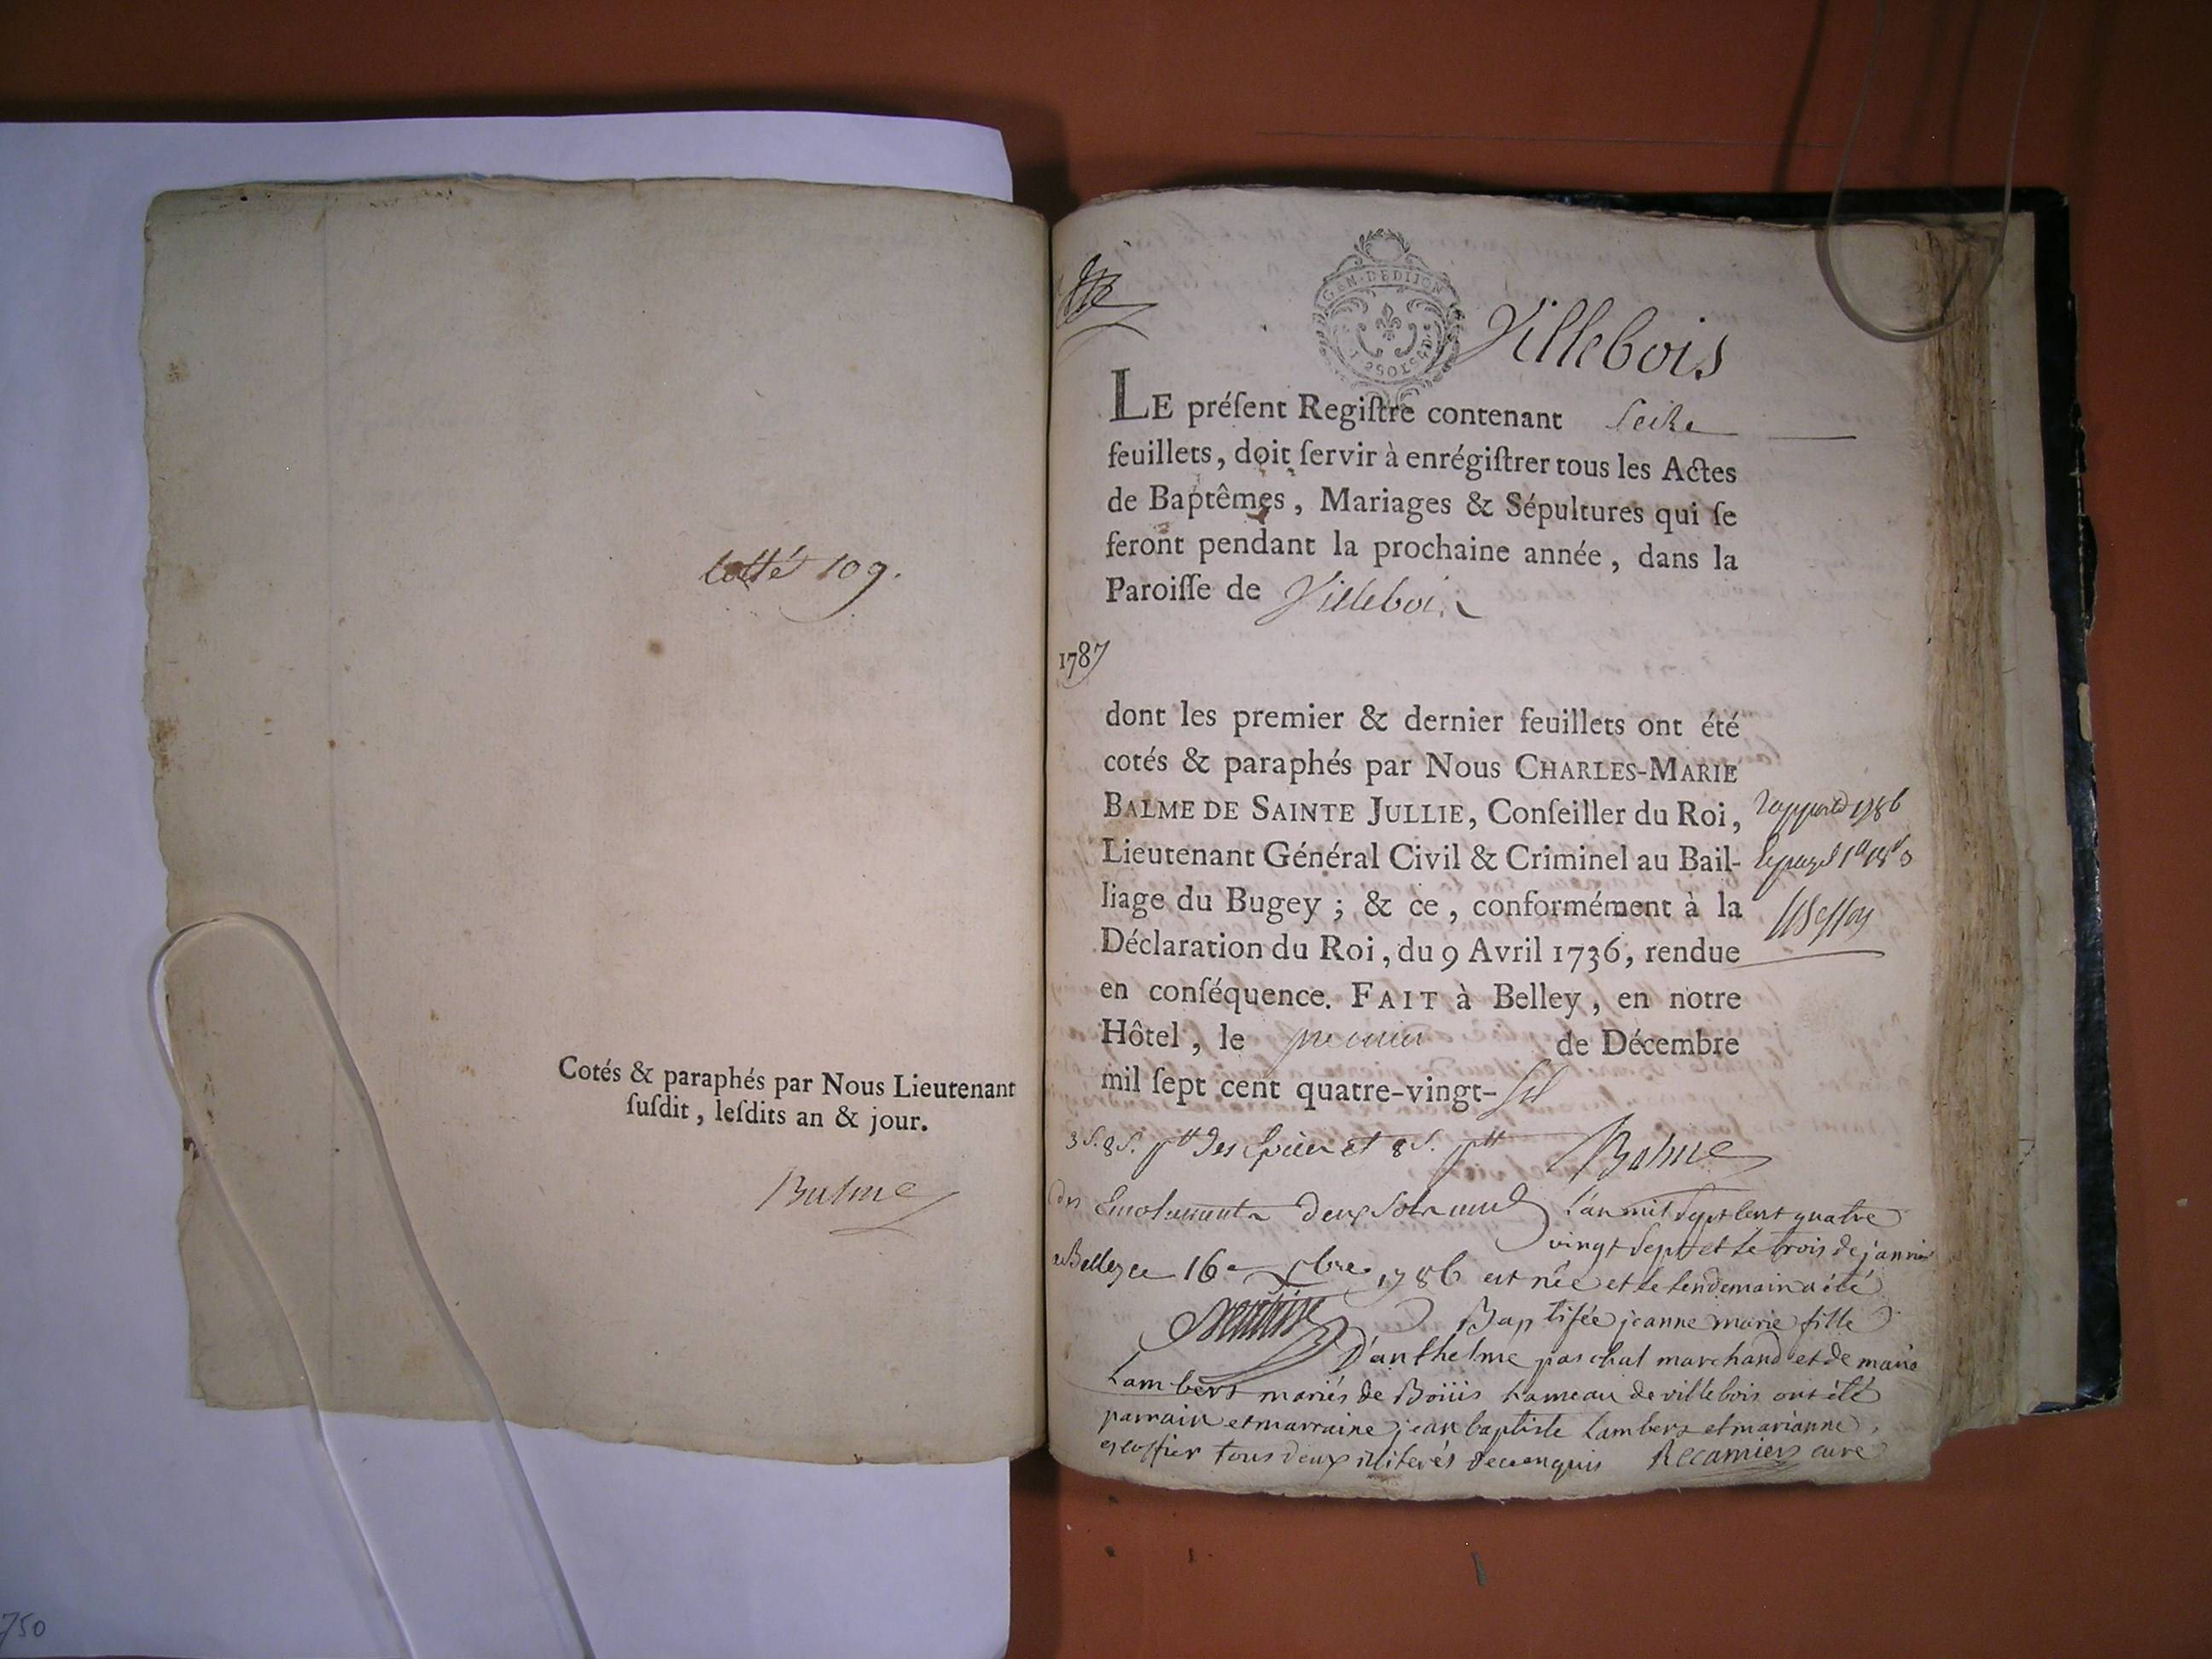 cottés 109.
Cotés & paraphés par Nous Lieutenant
ſuſdit, leſdits an & jour.
Balme
GEN. DE DIJON
Villebois
LE préſent Regiſtre contenant seize
feuillets, doit ſervir à enrégiſtrer tous les Actes
de Baptêmes, Mariages & Sépultures qui ſe
feront pendant la prochaine année, dans la
Paroiſſe de Villebois
1787
dont les premier & dernier feuillets ont été
cotés & paraphés par Nous CHARLES-MARIE
BALME DE SAINTE JULLIE, Conſeiller du Roi,
Lieutenant Général Civil & Criminel au Bail-
liage du Bugey ; & ce, conformément à la
Déclaration du Roi, du 9 Avril 1736, rendue
en conſéquence. FAIT à Belley, en notre
Hôtel, le premier de Décembre
mil ſept cent quatre-vingt-six
Balme
L'an mil sept cent quatre
vingt sept et le trois de janvier
Belley ce 16e Xbre 1786
est née et le lendemain a été
Baptisée jeanne marie fille
D'anthelme paschal marchand et de marie
Lambert mariés de Boüis hameau de villebois ont été
parrain et marraine jean baptiste Lambert et marianne
escoffier tous deux illiterés de ce enquis Recamier curé
750